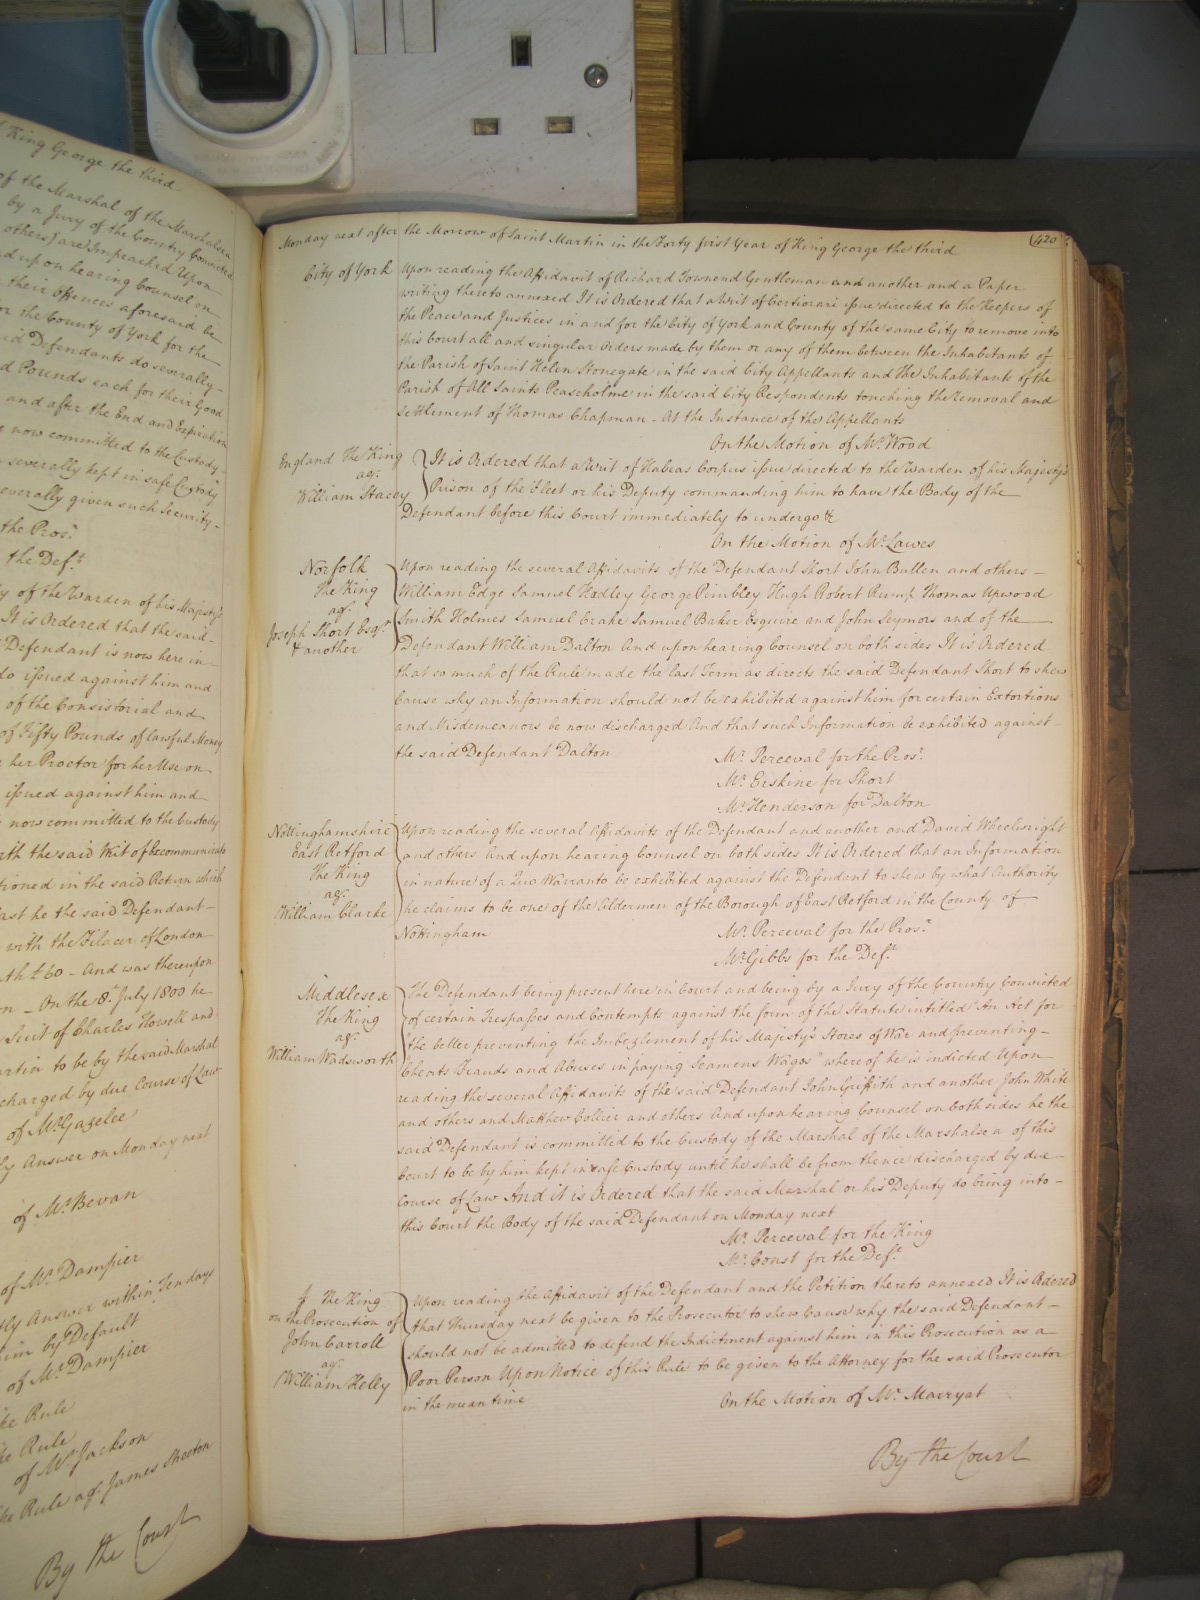 King George the third
of the Marshal of the Marshalsea
by a Jury of the Country Convicted
others) are Impeached Upon
upon hearing Counsel on
their offences aforesaid be
for the County of York for the
said Defendants do severally
Pounds each for their Good
and after the End and Expiration
now committed to the Custody
severally kept in safe Custody
severally given such Security
the Prosr
the Deft
of the Warden of his Majesty's
It is Ordered that the said
Defendant is now here in
issued against him and
of the Consistorial and
of Fifty Pounds of lawful Money
her Proctor for her Use on
issued against him and
now committed to the Custody
with the said Writ of
mentioned in the said Return which
last he the said Defendant
with the Filacer of London
£60 - And was thereupon
On the 8th July 1800 he
Suit of Charles Howell and
Martin to be by the said Marshal
discharged by due Course of Law
of Mr Gazelee
Answer on Monday next
of Mr Bevan
of Mr Dampier
Answer within Ten days
him by Default
of Mr Dampier
like Rule
like Rule
of Mr Jackson
like Rule agt James
By the Court
420
Monday next after the Morrow of Saint Martin in the Forty first Year of King George the third
City of York Upon reading the Affidavit of Richard Townend Gentleman and another and a Paper
writing thereto annexed It is Ordered that a Writ of Certiorari issue directed to the Keepers of
the Peace and Justices in and for the City of York and County of the same City to remove into
this Court all and singular Orders made by them or any of them between the Inhabitants of
the Parish of Saint Helen Stonegate in the said City Appellants and the Inhabitants of the
Parish of All Saints Peascholme in the said City Respondents touching the Removal and
settlement of Thomas Chapman - At the Instance of the Appellants
On the Motion of Mr Wood
England The King
agt
William Stacey
It is Ordered that a Writ of Habeas Corpus issue directed to the Warden of his Majesty's
Prison of the Fleet or his Deputy commanding him to have the Body of the
Defendant before this Court immediately to undergo &c
On the Motion of Mr Lawes
Norfolk
The King
agt
Joseph Short Esqr
& another
Upon reading the several Affidavits of the Defendant Short John Bullen and others
William Edge Samuel Hadley George Pimbley Hugh Robert Rump Thomas Upwood
Smith Holmes Samuel Crake Samuel Baker Esquire and John Seymors and of the
Defendant William Dalton And upon hearing Counsel on both sides It is Ordered
that so much of the Rule made the last Term as directs the said Defendant Short to shew
Cause why an Information should not be exhibited against him for certain Extortions
and Misdemeanors be now discharged And that such Information be exhibited against
the said Defendant Dalton
Mr Perceval for the Prosr
Mr Erskine for Short
Mr Henderson for Dalton
Nottinghamshire
East Retford
The King
agt
William Clarke
Upon reading the several Affidavits of the Defendant and another and David Wheelwright
and others And upon hearing Counsel on both sides It is Ordered that an Information
in nature of a Quo Warranto be exhibited against the Defendant to shew by what Authority
he claims to be one of the Aldermen of the Borough of East Retford in the County of
Nottingham
Mr Perceval for the Prosr
Mr Gibbs for the Deft
Middlesex
The King
agt
William Wadsworth
The Defendant being present here in Court and being by a Jury of the Country Convicted
of certain Trespasses and Contempts against the form of the Statute intitled "An Act for
the better preventing the Imbezlement of his Majesty's Stores of War and preventing
Cheats Frauds and Abuses in paying Seamens Wages" whereof he is indicted Upon
reading the several Affidavits of the said Defendant John Griffith and another John White
and others and Matthew Collier and others And upon hearing Counsel on both sides he the
said Defendant is committed to the Custody of the Marshal of the Marshalsea of this
Court to be by him kept in safe Custody until he shall be from thence discharged by due
Course of Law And it is Ordered that the said Marshal or his Deputy do bring into
this Court the Body of the said Defendant on Monday next
Mr Perceval for the King
Mr Const for the Deft
The King
on the Prosecution of
John Carroll
agt
William Kelly
Upon reading the Affidavit of the Defendant and the Petition thereto annexed It is Ordered
that Thursday next be given to the Prosecutor to shew Cause why the said Defendant
should not be admitted to defend the Indictment against him in this Prosecution as a
Poor Person Upon Notice of this Rule to be given to the Attorney for the said Prosecutor
in the mean time
On the Motion of Mr Marryat
By the Court